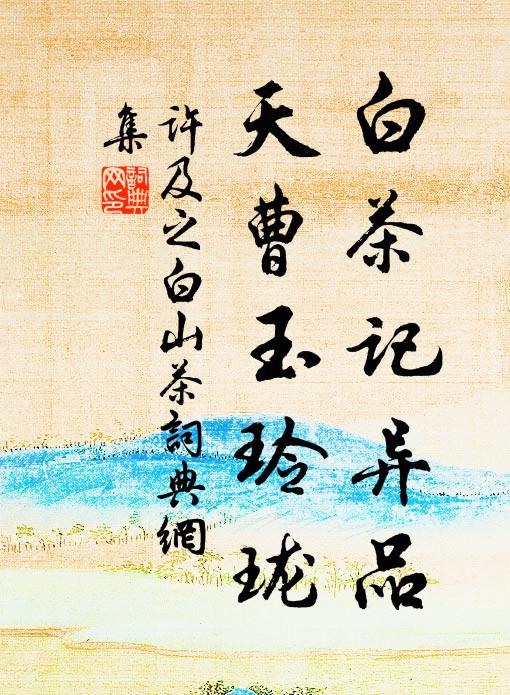 白茶记异品
天曹玉玲珑
许及之白山茶詞典網
集
詞典网印